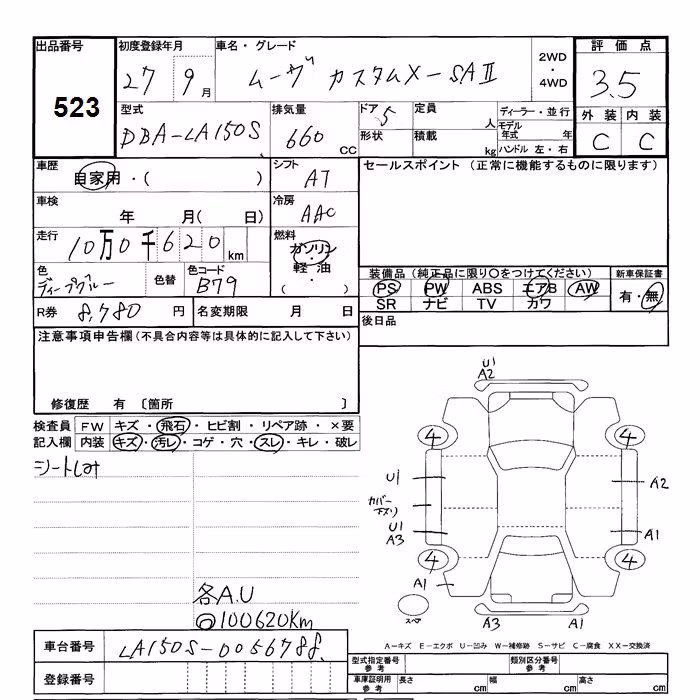 出品番号 初度登録年月 車名・グレード 2WD・4WD 評価点
523 27 9月 ムーヴ カスタムX-SAⅡ 3.5
型式 排気量 ドア 5 定員 人 ディーラー・並行 外装 内装
DBA-LA150S 660 CC 形状 積載 kg モデル年式 年 ハンドル 左・右 C C
車歴 自家用・( ) シフト AT セールスポイント (正常に機能するものに限ります)
車検 年 月( 日) 冷房 AAC
走行 10万0千620km 燃料 ガソリン・軽油・( )
色 ディープブルー 色替 色コード B79
装備品 (純正品に限り○をつけてください) 新車保証書
PS PW ABS エアB AW 有・無
SR ナビ TV カワ
R券 8,780円 名変期限 月 日 後日品
注意事項申告欄 (不具合内容等は具体的に記入して下さい)
修復歴 有 〔箇所 〕
検査員 FW キズ・飛石・ヒビ割・リペア跡・×要
記入欄 内装 キズ・汚レ・コゲ・穴・スレ・キレ・破レ
シートしみ
U1
A2
4 4
U1 A2
カバー
下ズリ
U1
A3 A1
4 4
A1
スペア
A3 A1
各A.U
◎100620Km
A-キズ E-エクボ U-凹み W-補修跡 S-サビ C-腐食 XX-交換済
車台番号 LA150S-0056788
型式指定番号 参考 類別区分番号 参考
登録番号 車庫証明用 参考 長さ cm 幅 cm 高さ cm